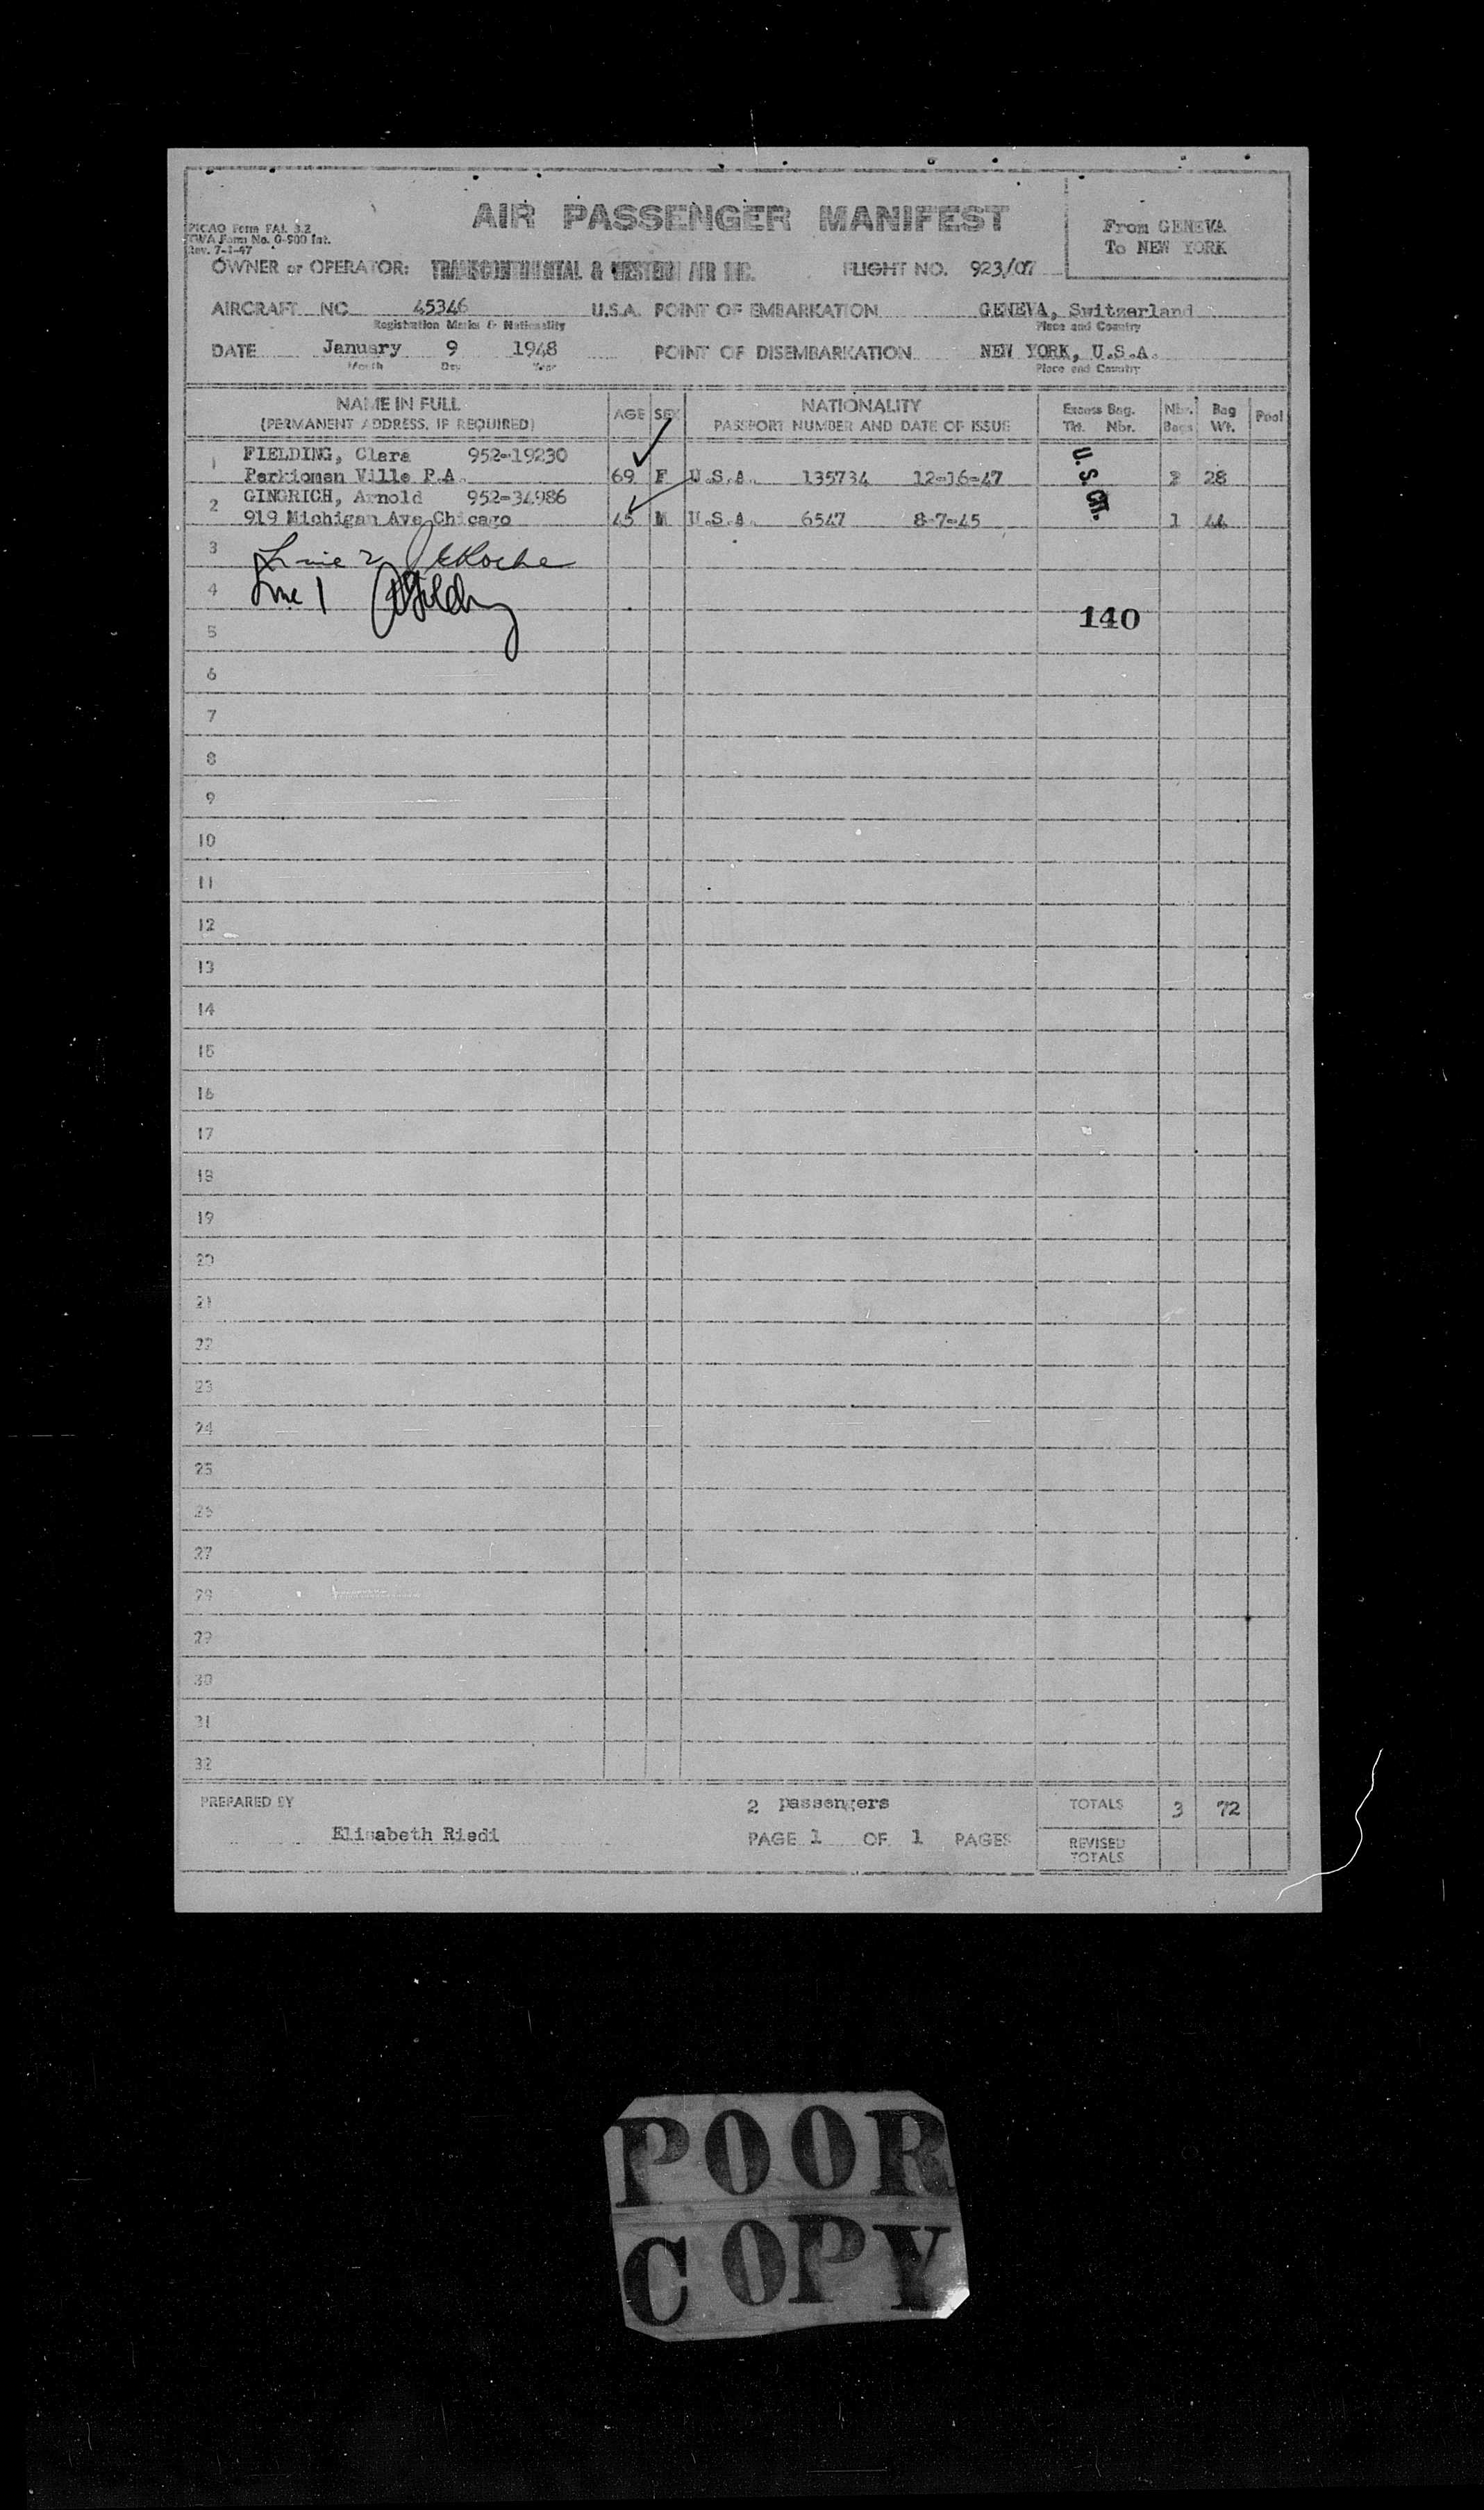 AIR PASSENGER MANIFEST
From GENEVA
To NEW YORK
PICAO Form FAL 3.2
TWA Form No. O-900 Int.
Rev. 7-1-47
OWNER or OPERATOR: TRANSCONTINENTAL & WESTERN AIR INC. FLIGHT NO. 923/07
AIRCRAFT NC 45346 U.S.A. POINT OF EMBARKATION GENEVA, Switzerland
Registration Marks & Nationality Place and Country
DATE January 9 1948 POINT OF DISEMBARKATION NEW YORK, U.S.A.
Month Day Year Place and Country
NAME IN FULL AGE SEX NATIONALITY Excess Bag. Nbr. Bag Pool
(PERMANENT ADDRESS, IF REQUIRED) PASSPORT NUMBER AND DATE OF ISSUE Tkt. Nbr. Bags Wt.
1 FIELDING, Clara 952-19230
Perkiomen Ville P.A. 69 F U.S.A. 135734 12-16-47 2 28
U.S CIT.
2 GINGRICH, Arnold 952-34986
919 Michigan Ave Chicago 45 M U.S.A. 6547 8-7-45 1 44
3 Line 2
4 Line 1
140
5
6
7
8
9
10
11
12
13
14
15
16
17
18
19
20
21
22
23
24
25
26
27
28
29
30
31
32
PREPARED BY 2 passengers TOTALS 3 72
Elisabeth Riedi PAGE 1 OF 1 PAGES REVISED
TOTALS
POOR
COPY